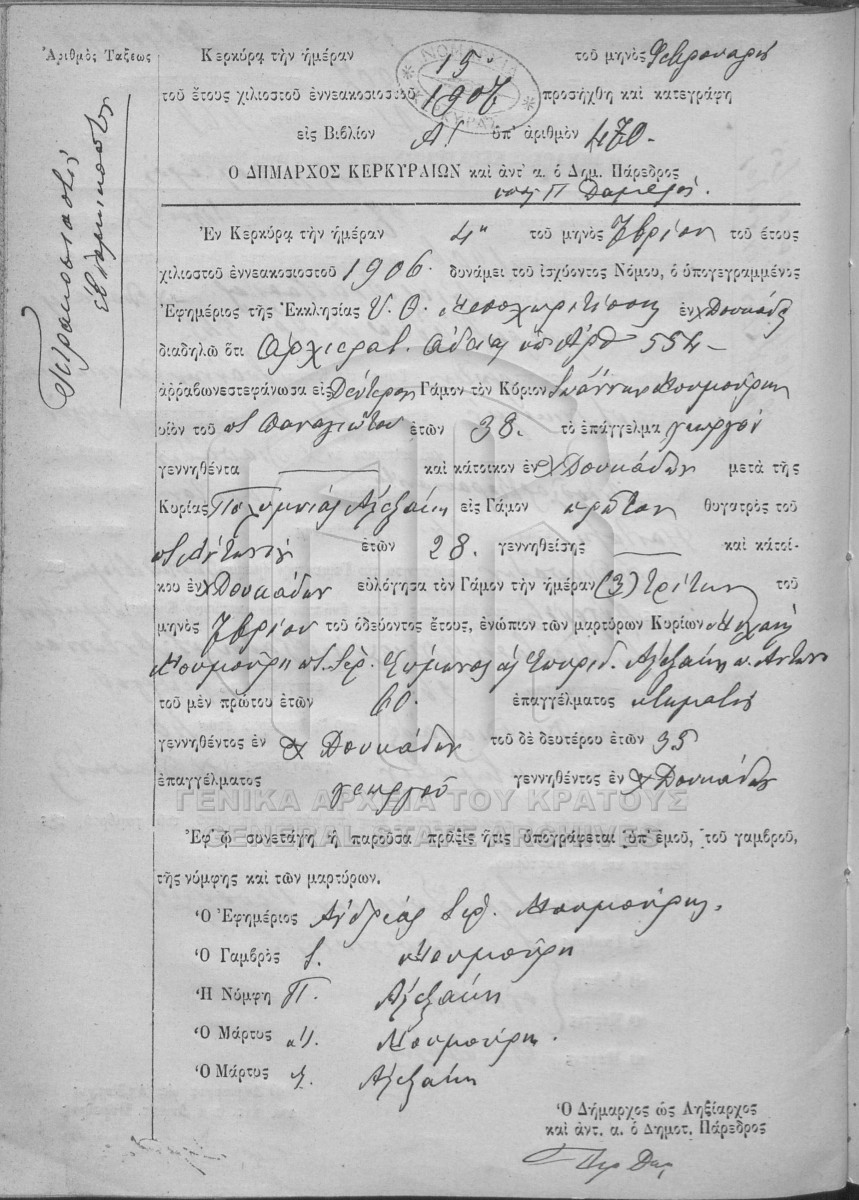 Ἀριθμὸς Τάξεως
Τετρακοσιοστή
ἑβδομηκοστή
Κερκύρα τὴν ἡμέραν 15 τοῦ μηνὸς Φεβρουαρίου
τοῦ ἔτους χιλιοστοῦ ἐννεακοσιοστοῦ 1907 προσήχθη καὶ κατεγράφη
εἰς Βιβλίον Α! ὑπ' ἀριθμὸν 470.
Ο ΔΗΜΑΡΧΟΣ ΚΕΡΚΥΡΑΙΩΝ καὶ ἀντ' α. ὁ Δημ. Πάρεδρος
Π
Ἐν Κερκύρᾳ τὴν ἡμέραν 4 τοῦ μηνὸς 7βρίου τοῦ ἔτους
χιλιοστοῦ ἐννεακοσιοστοῦ 1906. δυνάμει τοῦ ἰσχύοντος Νόμου, ὁ ὑπογεγραμμένος
Ἐφημέριος τῆς Ἐκκλησίας Υ. Θ. Μεσοχωριτίσσης ἐν χ Δουκάδες
διαδηλῶ ὅτι Ἀρχιερατ. ἀδείας ὑπ' Ἀρθ 554-
ἀρῥαβωνεστεφάνωσα εἰς Δεύτερον Γάμον τὸν Κύριον Ἰωάννην Κουμούρην
υἱὸν τοῦ π. Παναγιώτου ἐτῶν 38. τὸ ἐπάγγελμα γεωργοῦ
γεννηθέντα καὶ κάτοικον ἐν χ Δουκάδων μετὰ τῆς
Κυρίας Πολυμνίας Ἀλεξάκη εἰς Γάμον πρῶτον θυγατρὸς τοῦ
π. Ἀντωνίου ἐτῶν 28. γεννηθείσης καὶ κατοί-
κου ἐν χ Δουκάδων εὐλόγησα τὸν Γάμον τὴν ἡμέραν (3) Τρίτην τοῦ
μηνὸς 7βρίου τοῦ ὁδεύοντος ἔτους, ἐνώπιον τῶν μαρτύρων Κυρίων Μιχαὴλ
Κουμούρη π. Ἱερ. Σπυρίδ. Ἀλεξάκη π. Ἀντων
τοῦ μὲν πρώτου ἐτῶν 60. ἐπαγγέλματος κτηματίου
γεννηθέντος ἐν χ Δουκάδων τοῦ δὲ δευτέρου ἐτῶν 35
ἐπαγγέλματος γεωργοῦ γεννηθέντος ἐν χ Δουκάδων
ΓΕΝΙΚΑ ΑΡΧΕΙΑ ΤΟΥ ΚΡΑΤΟΥΣ
GENERAL STATE ARCHIVES
Ἐφ' ᾧ συνετάγη ἡ παροῦσα πρᾶξις ἥτις ὑπογράφεται ὑπ' ἐμοῦ, τοῦ γαμβροῦ,
τῆς νύμφης καὶ τῶν μαρτύρων.
Ὁ Ἐφημέριος Ἀνδρέας Ἱερ. Κουμούρης.
Ὁ Γαμβρὸς Ι. Κουμούρη
Ἡ Νύμφη Π. Ἀλεξάκη
Ὁ Μάρτυς Μ. Κουμούρη.
Ὁ Μάρτυς Σ. Ἀλεξάκη
Ὁ Δήμαρχος ὡς Ληξίαρχος
καὶ ἀντ. α. ὁ Δημοτ. Πάρεδρος